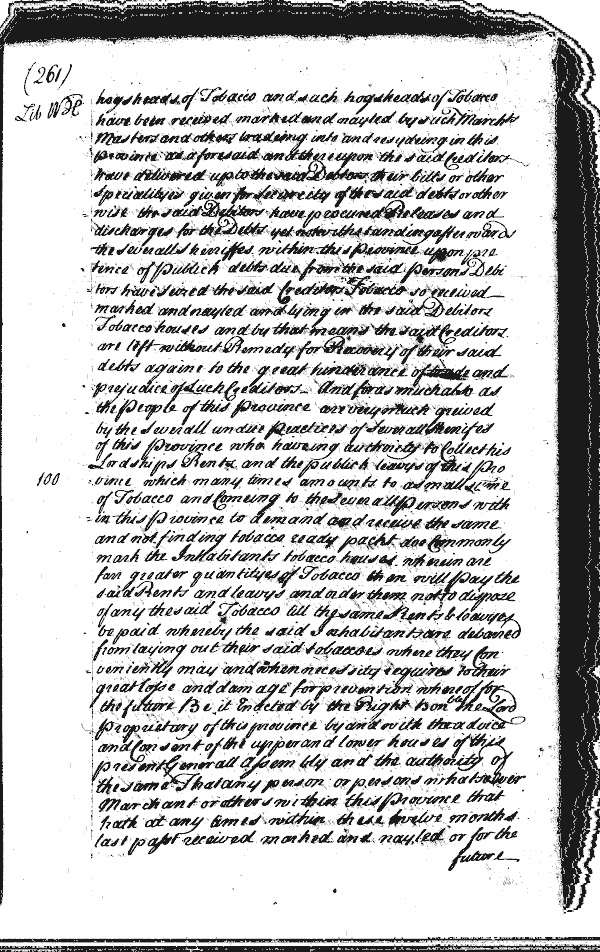 (261)
Lib WH
hogsheads of Tobacco and such hogsheads of Tobacco
have been received marked and nayled by such Marchts
Masters and others tradeing into and resydeing in this
Province as aforesaid and thereupon the said Creditors
have delivered up to the said Debtors their bills or other
specialityes given for securcity of the said debts or other
wise the said Debitors have procured Releases and
discharges for the Debts yet notwithstanding afterwards
the severall sheriffes within this Province upon pre
tence of publick debts due from the said persons Debi
tors have seized the said Creditors Tobacco so received
marked and nayled and lying in the said Debitors
Tobacco houses and by that means the said Creditors
are left without Remedy for Recovery of their said
debts againe to the great hinderance of trade and
prejudice of such Creditors And forasmuch also as
the People of this Province are very much greived
by the severall undue practices of severall sherifes
of this Province who haveing authoricty to Collect his
Lordships Rents and the publick leavys of this Pro
100
vince which many times amounts to a small sume
of Tobacco and Comeing to the severall Persons with
in this Province to demand and receive the same
and not finding tobacco ready packt doe Commonly
mark the Inhabitants tobacco houses wherein are
farr greater quantityes of Tobacco then will pay the
said Rents and leavys and order them not to dispose
of any the said Tobacco till the same Rents & leavyes
be paid whereby the said Inhabitants are debarred
from laying out their said tobaccoes where they Con
veniently may and when necessity requires to their
great losse and damage for prevention whereof for
the future Be it Enacted by the Right Honble the Lord
Proprietary of this province by and with the advice
and Consent of the upper and lower houses of this
present Generall Assembly and the authority of
the same That any person or persons whatsoever
Marchant or others within this Province that
hath at any times within these twelve months
last past received marked and nayled or for the
future